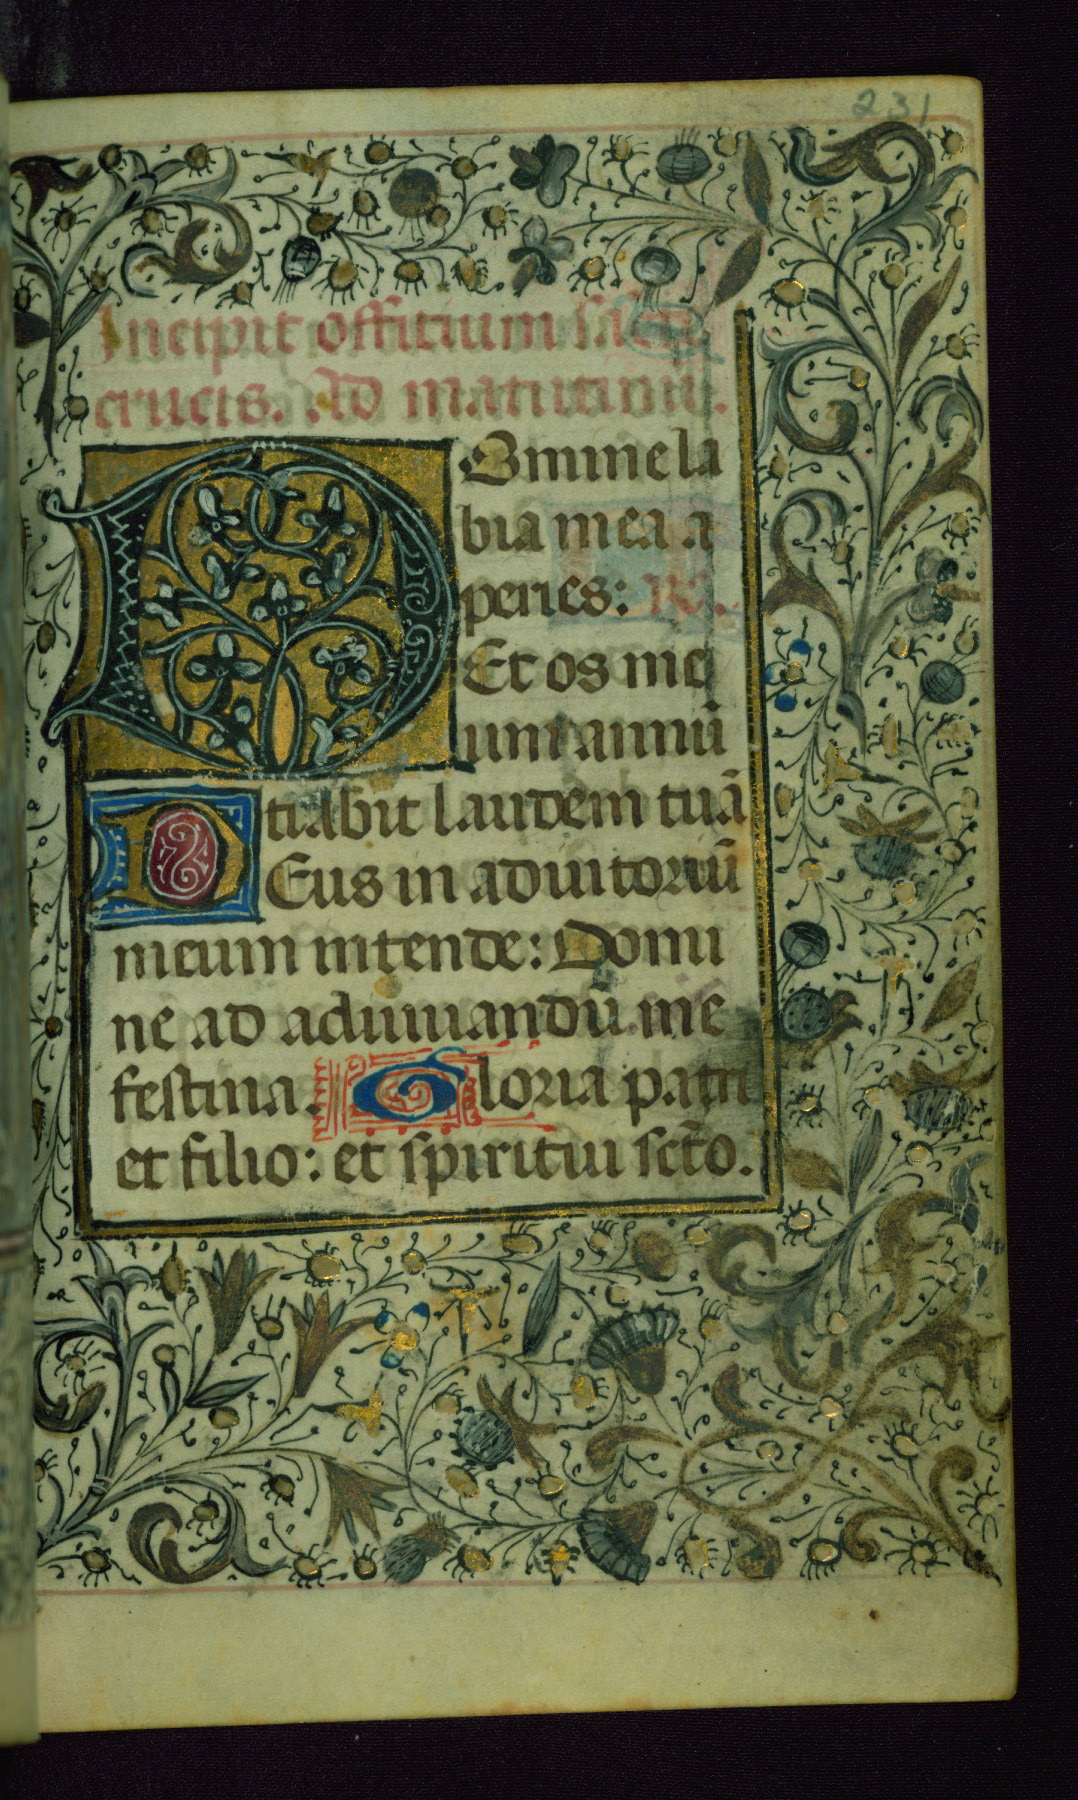 231
Incipit offitium sācte
crucis. Ad matutinū.
DOmine la
bia mea a
peries: R.
Et os me
um annū
tiabit laudem tuā
DEus in adiutoriū
meum intende: Domi
ne ad adiuuandū me
festina. Gloria patri
et filio: et spiritui sctō.